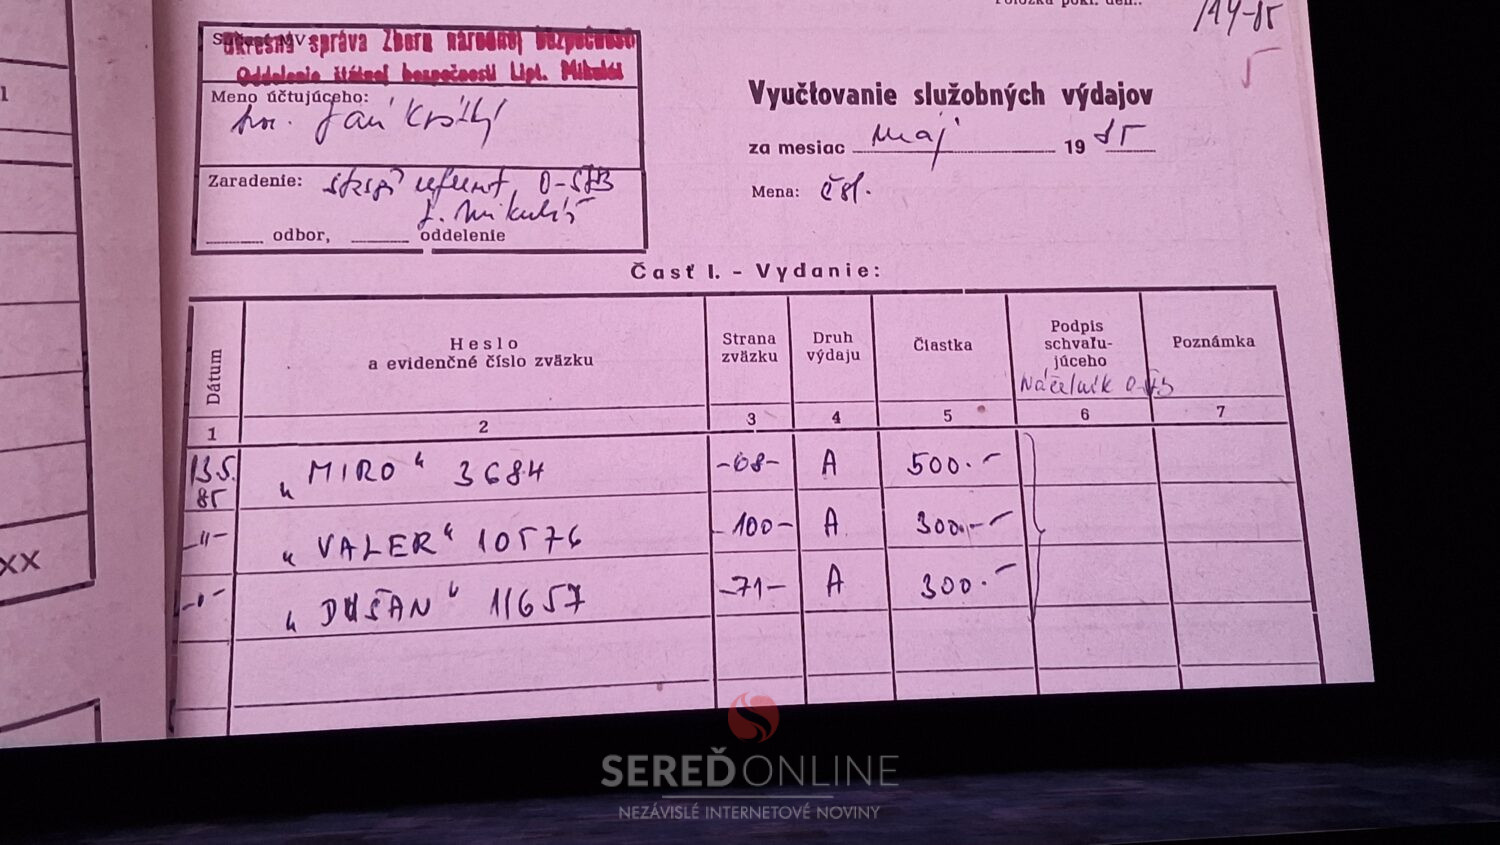 Položka pokl. den..
114-85
Súčasť MV
Okresná správa Zboru národnej bezpečnosti
Oddelenie štátnej bezpečnosti Lipt. Mikuláš
Meno účtujúceho:
Ján Krátky
Zaradenie:
referent, O-ŠTB
L. Mikuláš
odbor, oddelenie
Vyúčtovanie služobných výdajov
za mesiac máj 1985
Mena: čsl.
Časť I. - Vydanie:
Dátum
Heslo
a evidenčné číslo zväzku
Strana
zväzku
Druh
výdaju
Čiastka
Podpis
schvaľu-
júceho
Náčelník O-ŠTB
Poznámka
1 2 3 4 5 6 7
13.5. „MIRO“ 3684 -68- A 500.-
85
-"- „VALER“ 10576 -100- A 300.-
-"- „DUŠAN“ 11657 -71- A 300.-
XX
SEREĎONLINE
NEZÁVISLÉ INTERNETOVÉ NOVINY